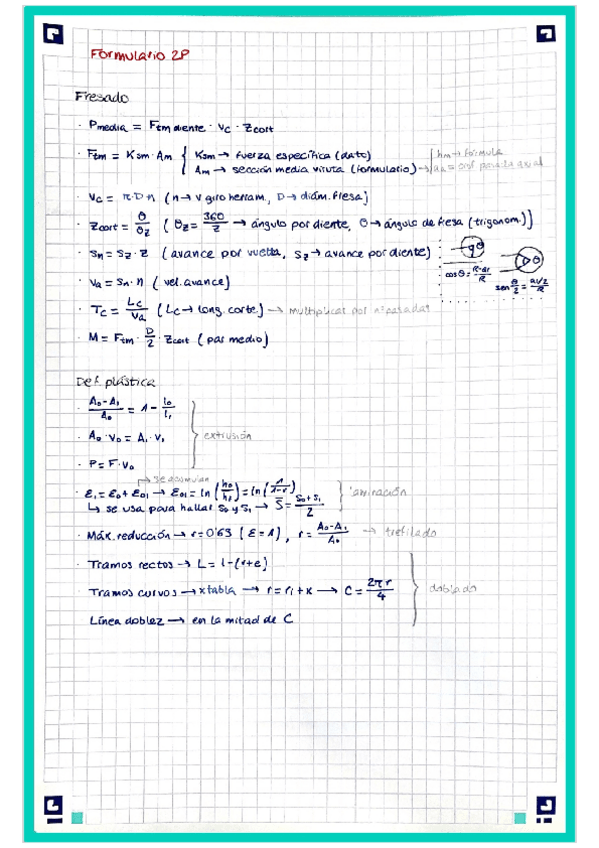 Formulario 2P
Fresado
· Pmedia = Ftm diente · Vc · Zcort
· Ftm = Ksm · Am { Ksm → fuerza específica (dato) | hm → fórmula
Am → sección media viruta (formulario) →
· Vc = π·D·n (n → v giro herram, D → diám. fresa)
· Zcort = θ/θz (θz = 360/z → ángulo por diente, θ → ángulo de fresa (trigonom.))
· Sn = Sz · Z (avance por vuelta, Sz → avance por diente)
cos θ = R-ar/R
sen θ/2 = ar/2/R
· Va = Sn · n (vel. avance)
· Tc = Lc/Va (Lc → long. corte) → multiplicar por nº pasadas
· M = Ftm · D/2 · Zcort (par medio)
Def. plástica
· A0-A1/A0 = 1 - l0/l1
· A0 · V0 = A1 · V1 } extrusión
· P = F · V0
→ se acumulan
· ε1 = ε0 + ε01 → ε01 = ln(h0/h1) = ln(1/1-r) } laminación
↳ se usa para hallar S0 y S1 → S̄ = S0+S1/2
· Máx. reducción → r = 0'63 (ε = 1), r = A0-A1/A0 → trefilado
· Tramos rectos → L = l-(r+e)
· Tramos curvos → x tabla → r = ri + x → C = 2πr/4 } doblado
Línea doblez → en la mitad de C